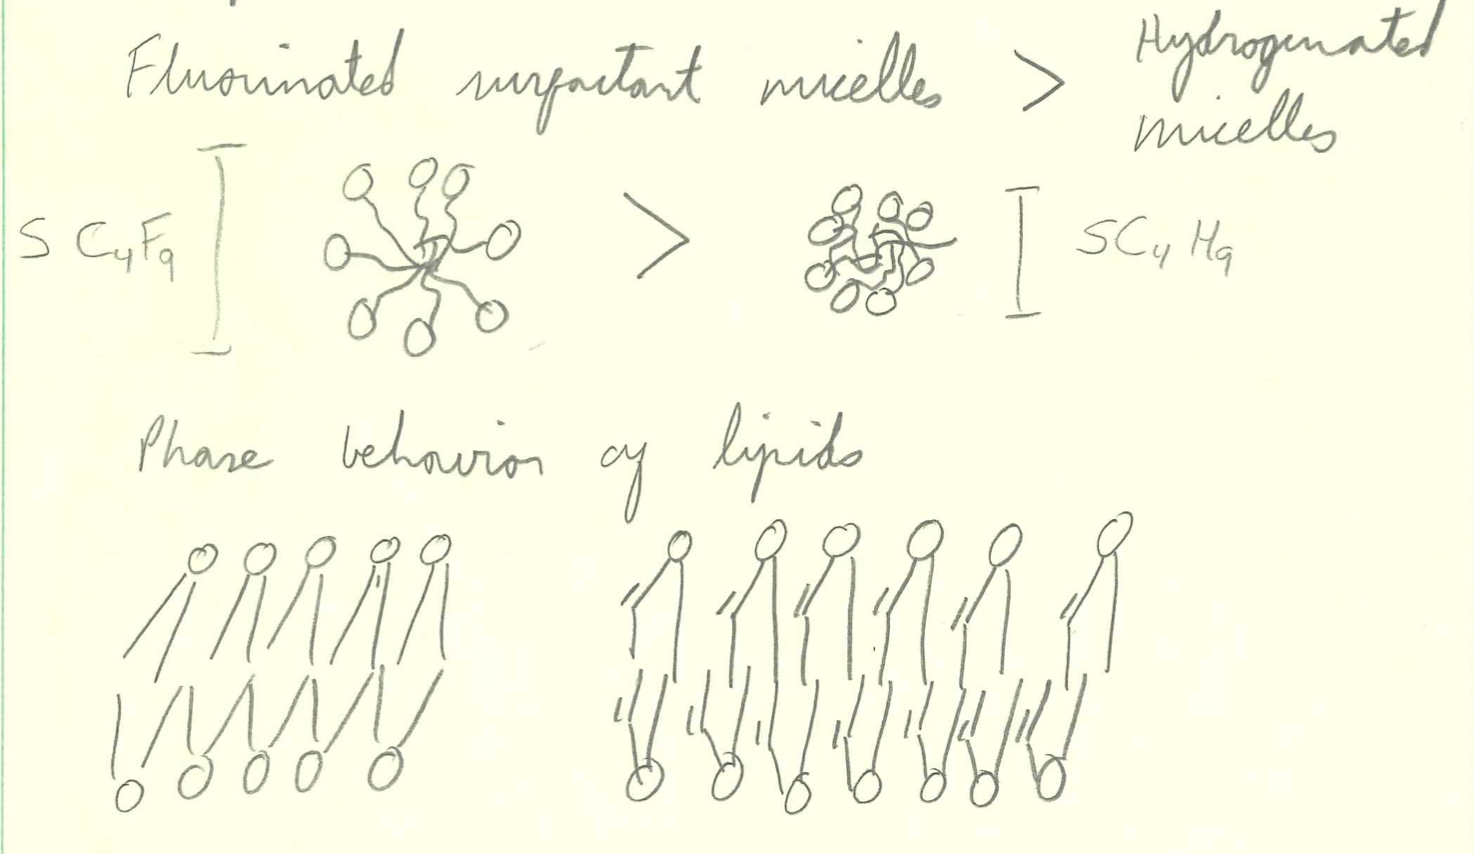 Fluorinated surfactant micelles > Hydrogenated
micelles
S C₄F₉ > SC₄ H₉
Phase behavior of lipids